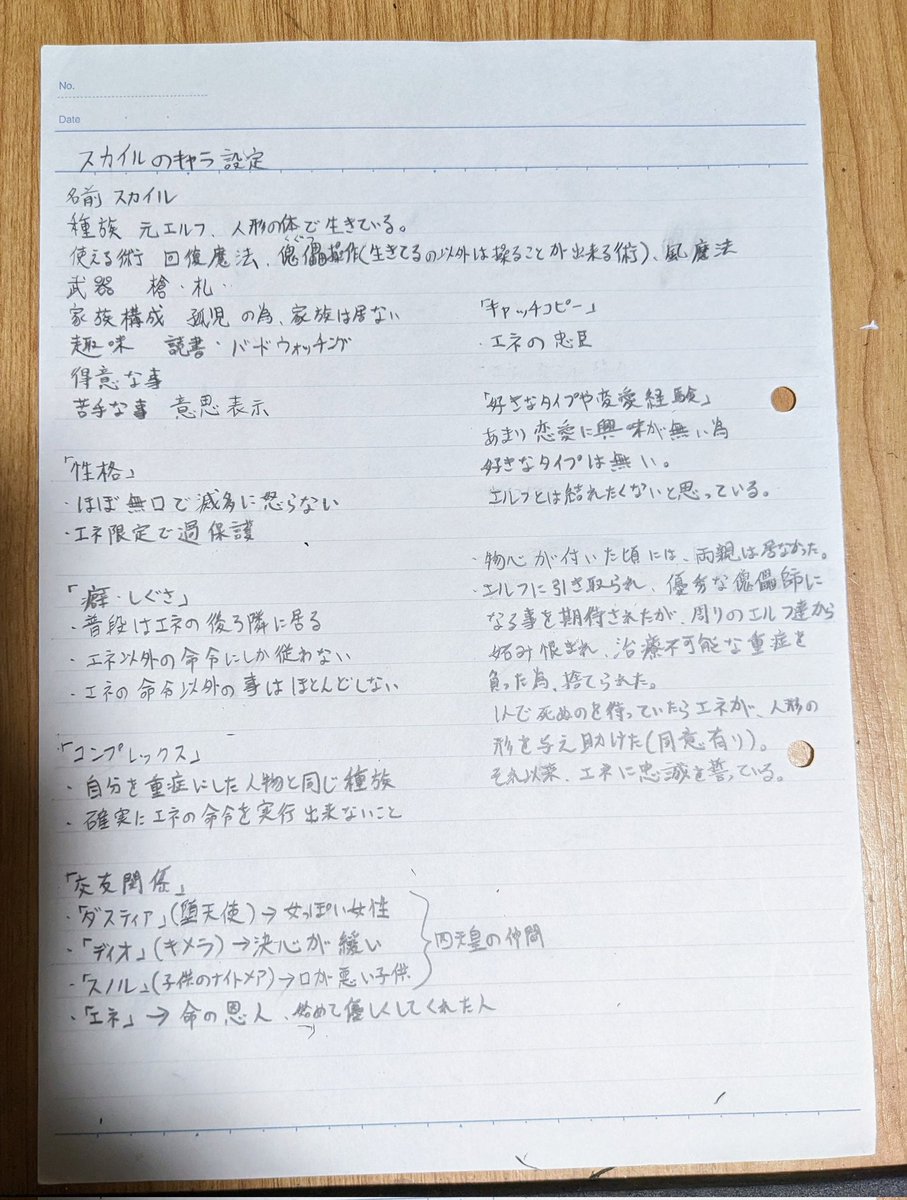 No.
Date
スカイルのキャラ設定
名前 スカイル
種族 元エルフ、人形の体で生きている。
使える術 回復魔法、傀儡操作(生きてるの以外は操ることが出来る術)、風魔法
くぐつ
武器 槍・札・
家族構成 孤児の為、家族は居ない
趣味 読書・バードウォッチング
得意な事
苦手な事 意思表示
「性格」
・ほぼ無口で滅多に怒らない
・エネ限定で過保護
「癖・しぐさ」
・普段はエネの後ろ隣に居る
・エネ以外の命令にしか従わない
・エネの命令以外の事はほとんどしない
「コンプレックス」
・自分を重症にした人物と同じ種族
・確実にエネの命令を実行出来ないこと
「交友関係」
・「ダスティア」(堕天使)→女っぽい女性
・「ディオ」(キメラ)→決心が緩い
・「スノル」(子供のナイトメア)→口が悪い子供
四天皇の仲間
・「エネ」→命の恩人、始めて優しくしてくれた人
「キャッチコピー」
・エネの忠臣
「好きなタイプや恋愛経験」
あまり恋愛に興味が無い為
好きなタイプは無い。
エルフとは結れたくないと思っている。
・物心が付いた頃には、両親は居なかった。
・エルフに引き取られ、優秀な傀儡師に
なる事を期待されたが、周りのエルフ達から
妬み恨まれ、治療不可能な重症を
負った為、捨てられた。
1人で死ぬのを待っていたらエネが、人形の
形を与え助けた(同意有り)。
それ以来、エネに忠誠を誓っている。